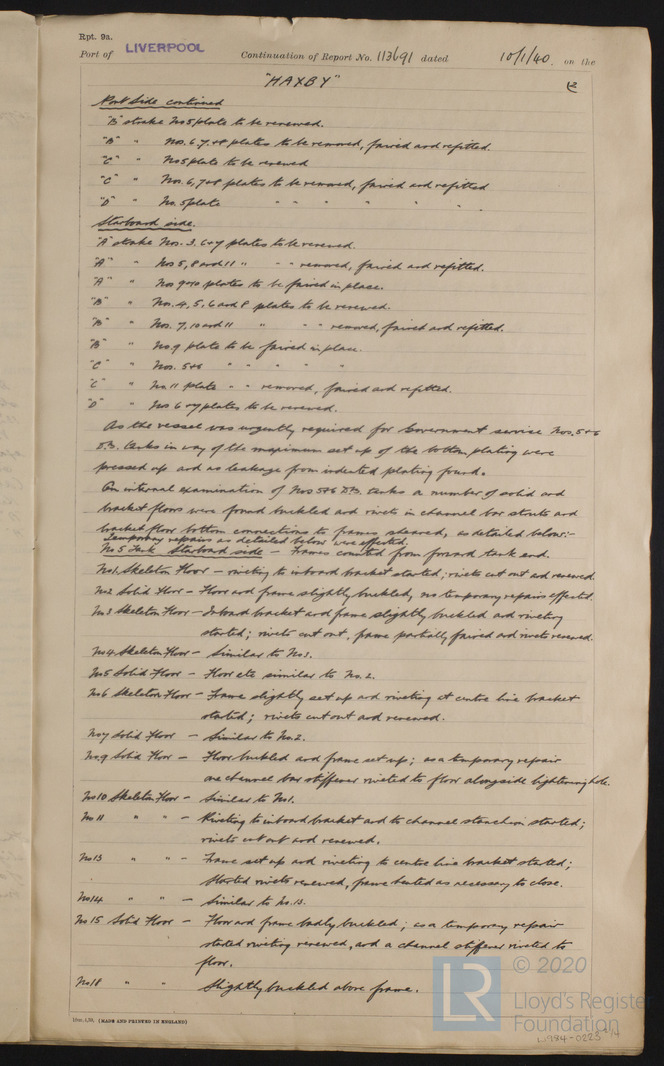 Rpt. 9a.
Port of LIVERPOOL Continuation of Report No. 113691 dated 10/1/40. on the
"HAXBY"
Port Side continued
"B" strake No 5 plate to be renewed.
"B" " Nos. 6, 7, & 8 plates to be removed, faired and refitted.
"C" " No 5 plate to be renewed
"C" " Nos. 6, 7 & 8 plates to be removed, faired and refitted
"D" " No. 5 plate " " " " " "
Starboard side.
"A" strake Nos. 3, 6 & 7 plates to be renewed.
"A" " Nos 5, 8 and 11 " " " removed, faired and refitted.
"A" " Nos 9 & 10 plates to be faired in place.
"B" " Nos. 4, 5, 6 and 8 plates to be renewed.
"B" " Nos. 7, 10 and 11 " " " removed, faired and refitted.
"B" " No. 9 plate to be faired in place.
"C" " Nos. 5 & 6 " " " " "
"C" " No. 11 plate " " removed, faired and refitted.
"D" " Nos 6 & 7 plates to be renewed.
As the vessel was urgently required for Government service Nos. 5 & 6
D.B. tanks in way of the maximum set up of the bottom plating were
pressed up and no leakage from indented plating found.
On internal examination of Nos 5 & 6 D.B. tanks a number of solid and
bracket floors were found buckled and rivets in channel bar struts and
bracket floor bottom connections to frames sheared, as detailed below:-
Temporary repairs as detailed below were effected.
No 5 Tank Starboard side - Frames counted from forward tank end.
No 1. Skeleton Floor - riveting to inboard bracket started; rivets cut out and renewed.
No 2 Solid Floor - Floor and frame slightly buckled, no temporary repairs effected.
No 3 Skeleton Floor - Inboard bracket and frame slightly buckled and riveting
started; rivets cut out, frame partially faired and rivets renewed.
No 4 Skeleton Floor - Similar to No 3.
No 5 Solid Floor - Floor etc similar to No. 2.
No 6 Skeleton Floor - Frame slightly set up and riveting at centre line bracket
started; rivets cut out and renewed.
No 7 Solid Floor - Similar to No. 2.
No. 9 Solid Floor - Floor buckled and frame set up; as a temporary repair
one channel bar stiffener riveted to floor alongside lightening hole.
No 10 Skeleton Floor - Similar to No 1.
No 11 " " - Riveting to inboard bracket and to channel stanchion started;
rivets cut out and renewed.
No 13 " " - Frame set up and riveting to centre line bracket started;
Started rivets renewed, frame heated as necessary to close.
No 14 " " - Similar to No. 13.
No 15 Solid Floor - Floor and frame badly buckled; as a temporary repair
started riveting renewed, and a channel stiffener riveted to
floor.
No 18 " " Slightly buckled above frame.
(MADE AND PRINTED IN ENGLAND)
LR
© 2020
Lloyd's Register
Foundation